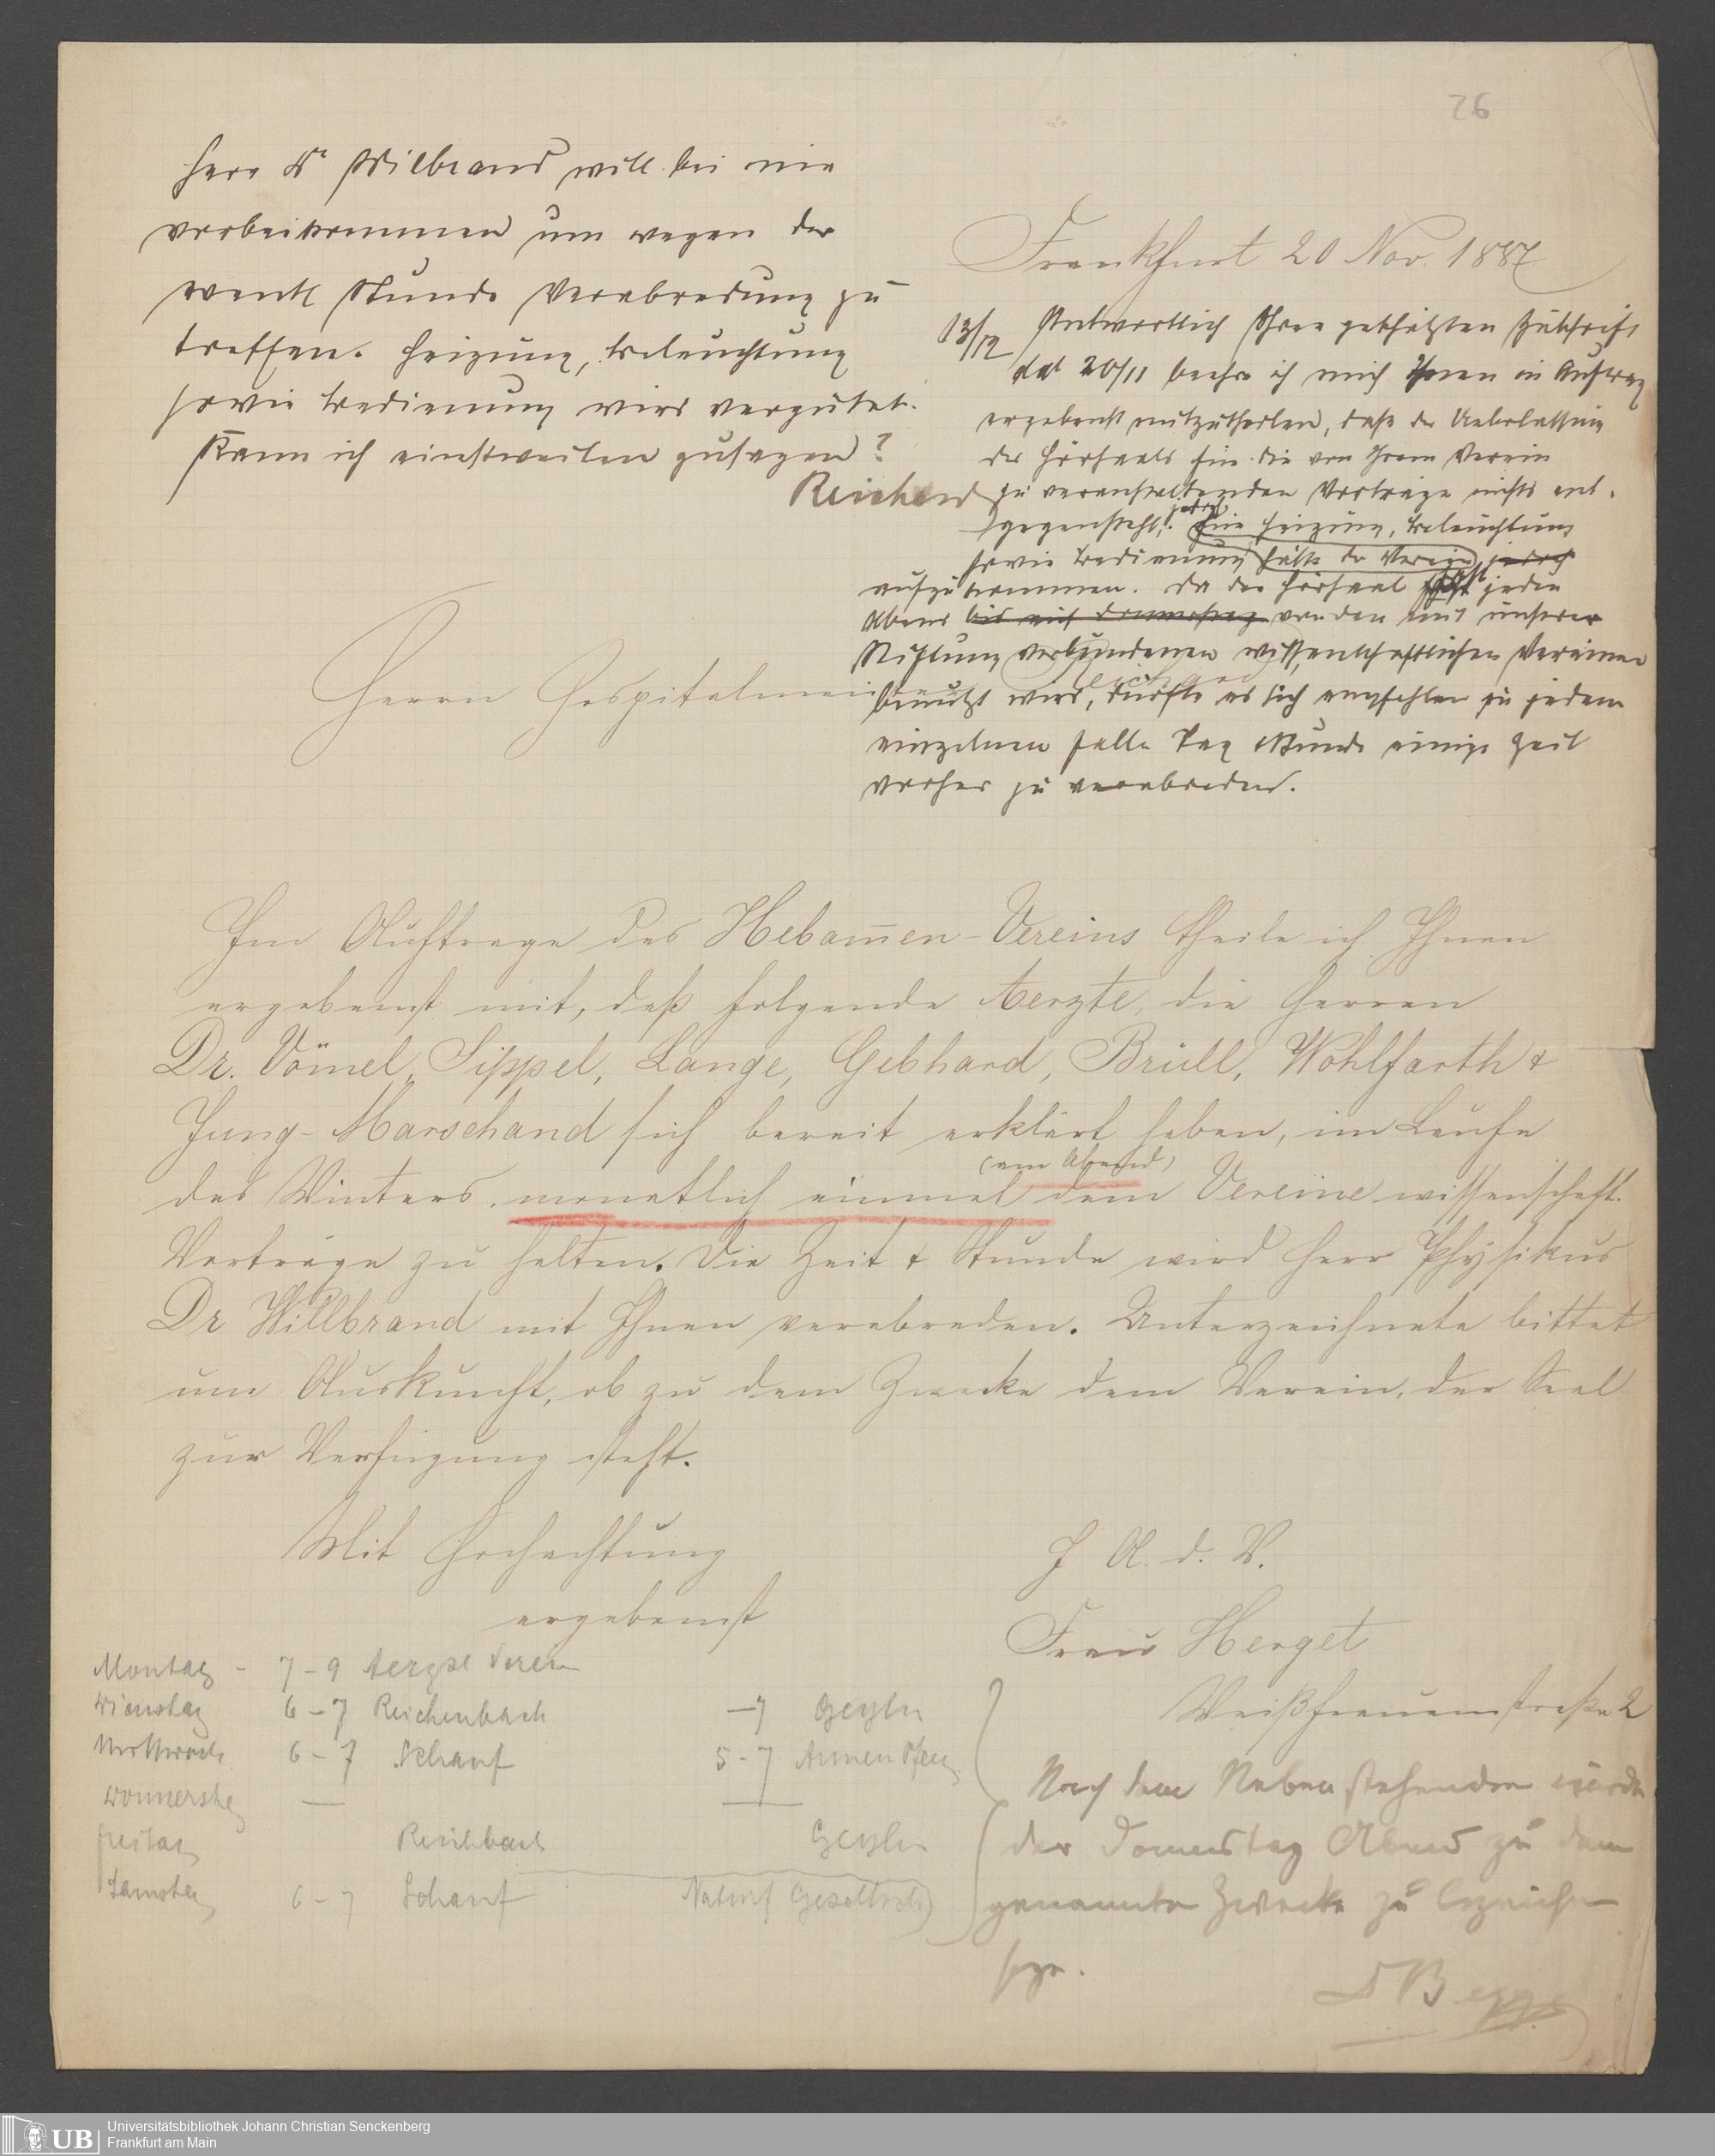 26
Herr Dr Wilbrand will bei mir
vorbeikommen um wegen der
eventl Stunde Verabredung zu
treffen. Heizung, Beleuchtung
sowie Bedienung wird vergütet.
Kann ich einstweilen zusagen?
Reichard
Frankfurt 20 Nov. 1887
13/12 Antwortlich Ihrer geschätzten Zuschrift
dat 20/11 beehre ich mich Ihnen im Auftrag
ergebenst mitzutheilen, dass der Ueberlassung
des Hörsaals für die von Ihrem Verein
zu veranstaltenden Vorträge nichts ent-
gegensteht, jedoch
Für Heizung, Beleuchtung
sowie Bedienung hätte der Verein jedoch
aufzukommen. Da der Hörsaal fast jeden
Abend bis auf Donnerstag von den mit unserer
Stiftung verbundenen wissenschaftlichen Vereinen
benutzt wird, dürfte es sich empfehlen zu jedem
einzelnen Falle Tag & Stunde einige Zeit
vorher zu verabreden.
Herrn Hospitalmeister
Im Auftrage des Hebam̅en-Vereins theile ich Ihnen
ergebenst mit, daß folgende Aerzte, die Herren
Dr. Vömel, Sippel, Lange, Gebhard, Brüll, Wohlfarth &
Jung-Marschand sich bereit erklärt haben, im Laufe
des Winters, monatlich einmal (am Abend) dem Vereine wissenschaft.
Vorträge zu halten. Die Zeit & Stunde wird Herr Physikus
Dr Willbrand mit Ihnen verabreden. Unterzeichnete bittet
um Auskunft, ob zu dem Zwecke dem Verein, der Saal
zur Verfügung steht.
Mit Hochachtung
ergebenst
J A. d. V.
Frau Herget
Weißfrauenstraße 2
Montag - 7-9 Aerztl Verein
Dienstag 6-7 Reichenbach -7 Geyler
Mittwoch 6-7 Schauf 5-7 Armen
Donnerstag — —
Freitag Reichbach Geyler
Samstag 6-7 Schauf Naturf Gesellsch
Nach dem Nebenstehenden würde
der Donnerstag Abend zu dem
genannten Zwecke zu bezeichnen
sein.